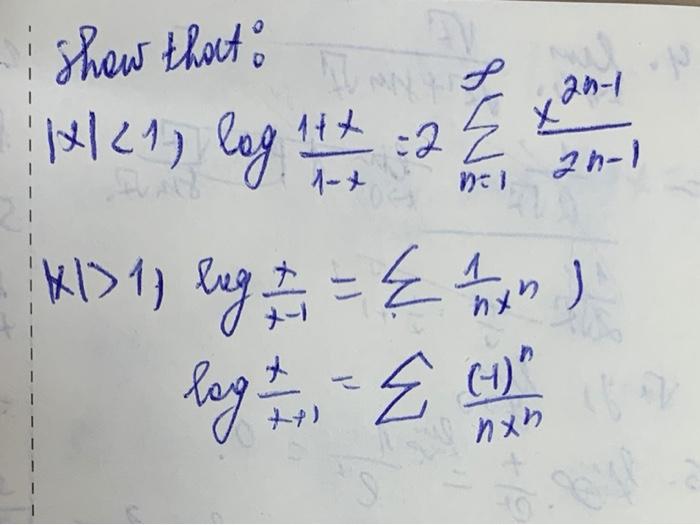 show that:
|x| < 1, log \frac{1+x}{1-x} = 2 \sum_{n=1}^{\infty} \frac{x^{2n-1}}{2n-1}
|x| > 1, log \frac{x}{x-1} = \sum \frac{1}{nx^n} )
log \frac{x}{x+1} = \sum \frac{(-1)^n}{nx^n}